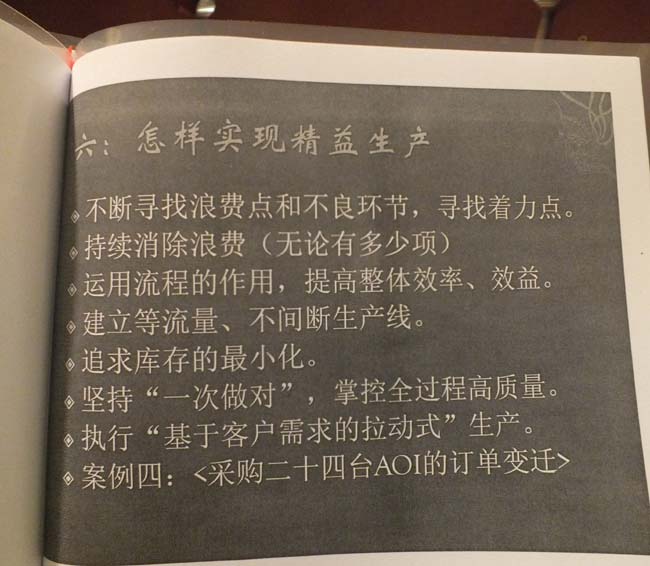 六：怎样实现精益生产
不断寻找浪费点和不良环节，寻找着力点。
持续消除浪费（无论有多少项）
运用流程的作用，提高整体效率、效益。
建立等流量、不间断生产线。
追求库存的最小化。
坚持“一次做对”，掌控全过程高质量。
执行“基于客户需求的拉动式”生产。
案例四：<采购二十四台AOI的订单变迁>